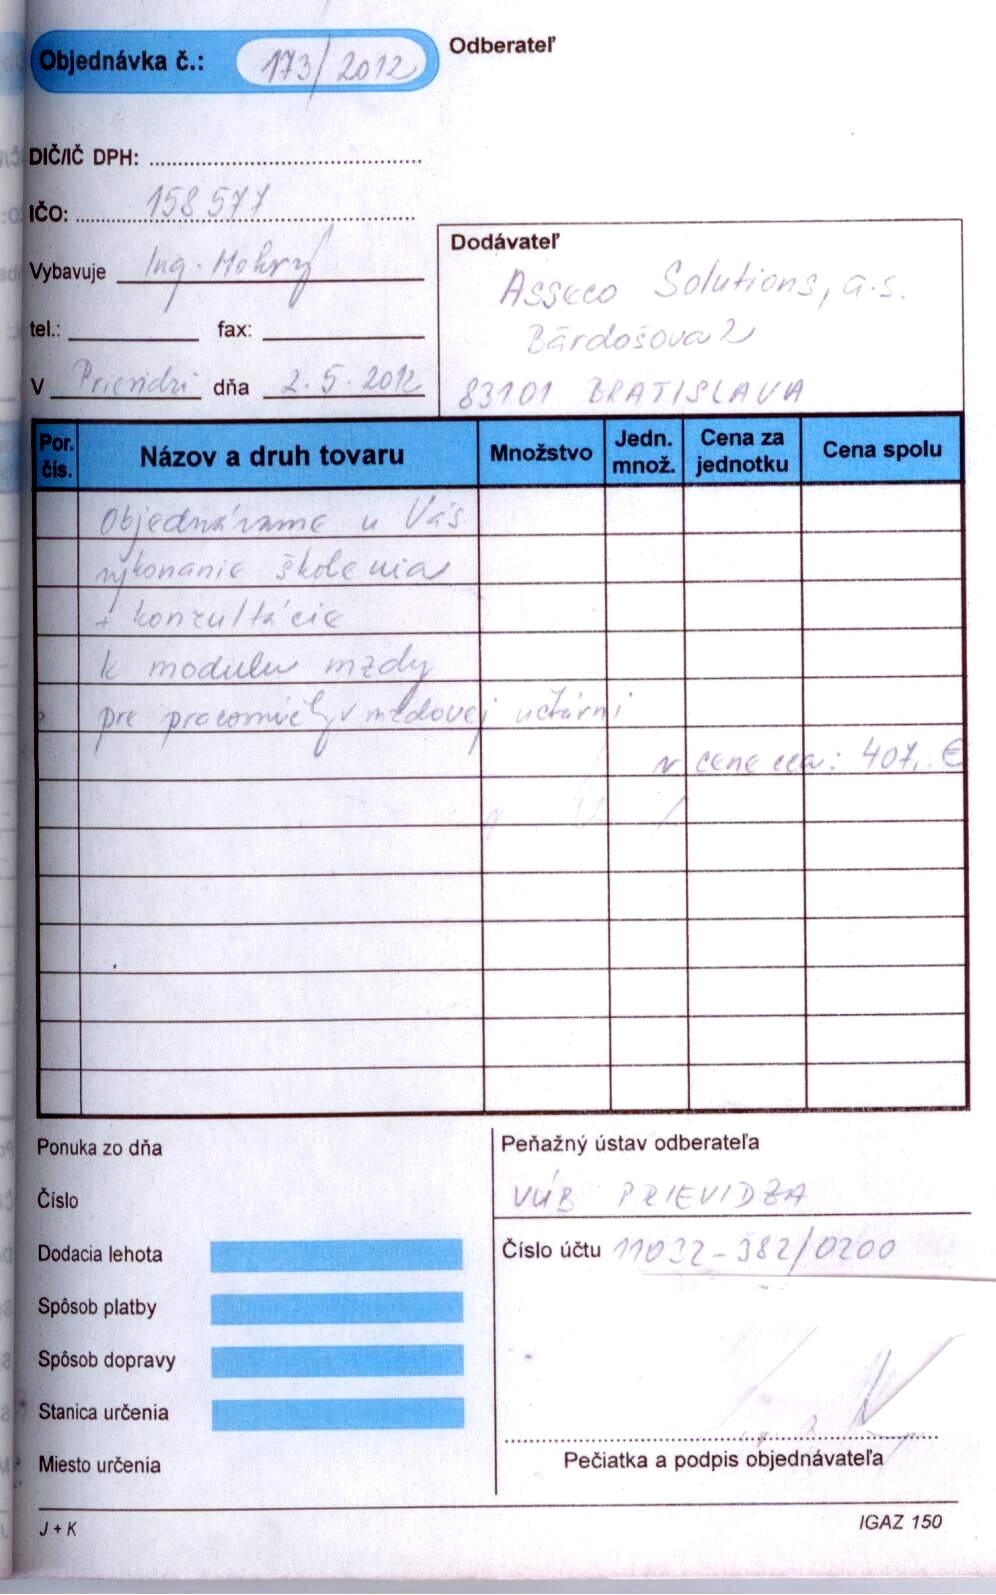 Objednávka č.: 173/2012
Odberateľ
DIČ/IČ DPH:
IČO: 158 577
Vybavuje Ing. Mokrý
tel.: fax:
V Prievidzi dňa 2.5.2012
Dodávateľ
Asseco Solutions, a.s.
Bárdošova 2
83101 BRATISLAVA
Por. čís. Názov a druh tovaru Množstvo Jedn. množ. Cena za jednotku Cena spolu
Objednávame u Vás
vykonanie školenia
+ konzultácie
k modulu mzdy
pre pracovníčky v mzdovej učtárni
v cene cca: 407,- €
Ponuka zo dňa
Číslo
Dodacia lehota
Spôsob platby
Spôsob dopravy
Stanica určenia
Miesto určenia
Peňažný ústav odberateľa
VÚB PRIEVIDZA
Číslo účtu 11032-382/0200
Pečiatka a podpis objednávateľa
J + K
IGAZ 150